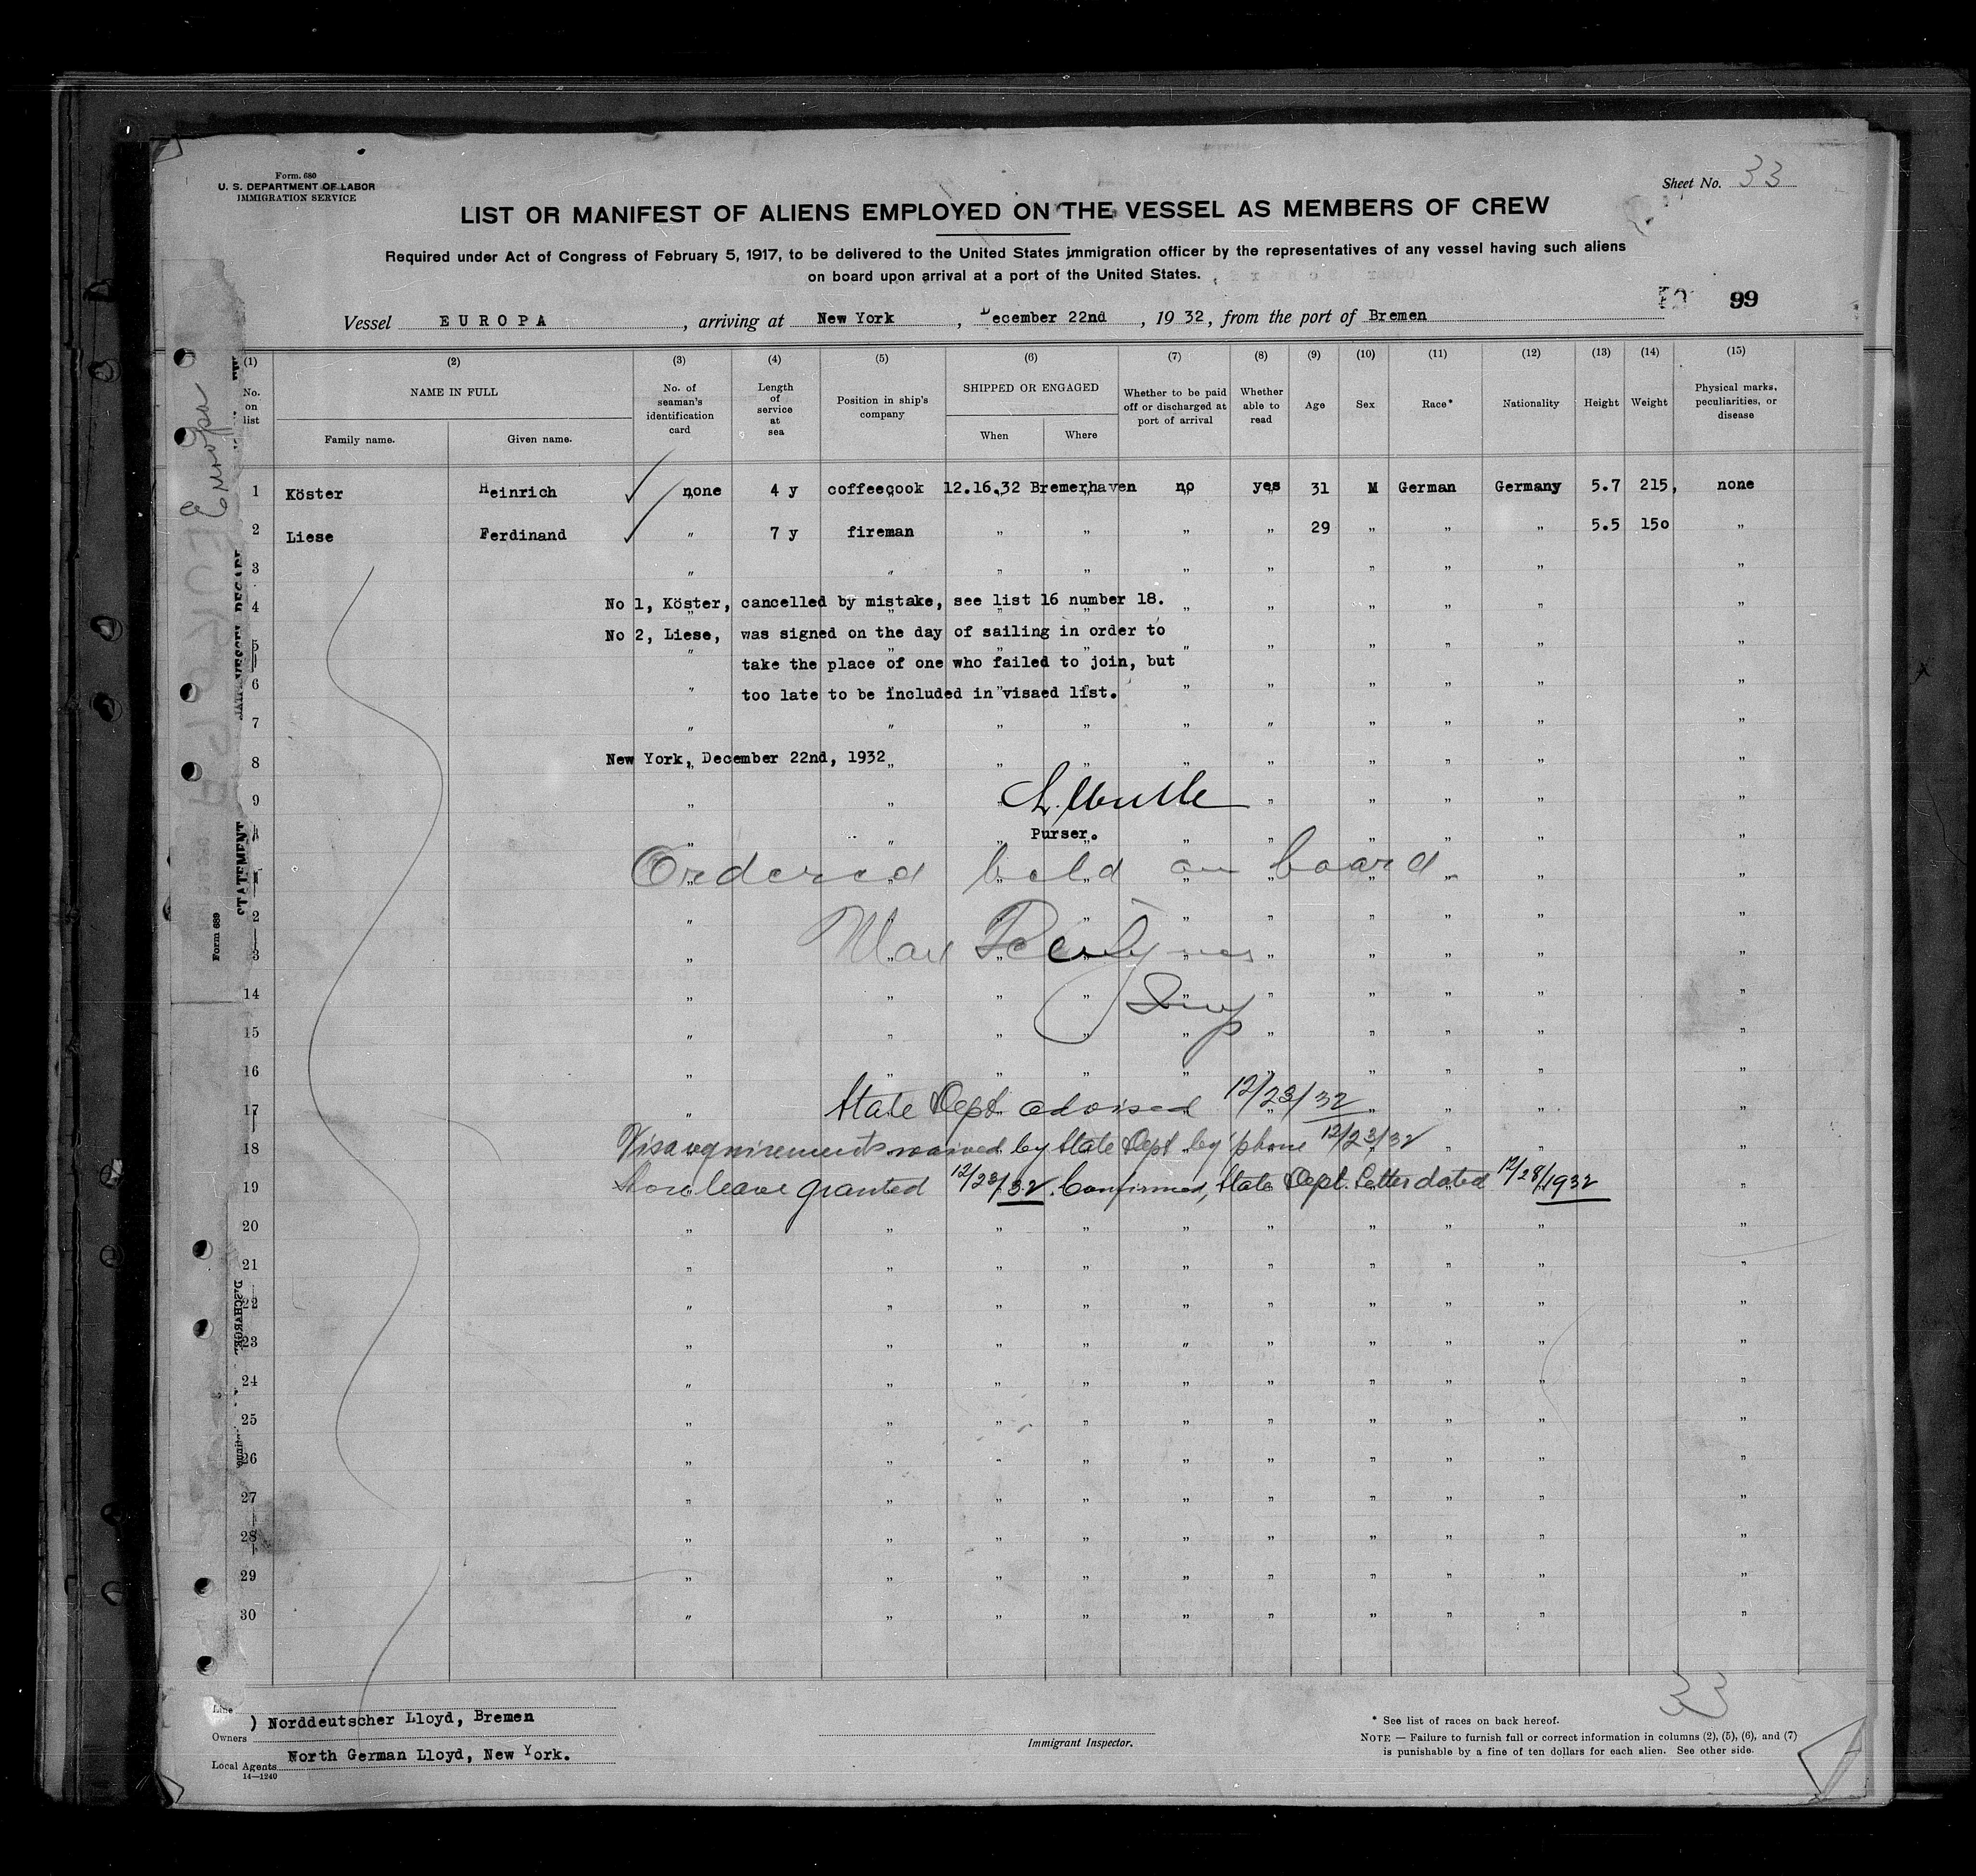 Form. 680
U. S. DEPARTMENT OF LABOR
IMMIGRATION SERVICE
Sheet No. 33
LIST OR MANIFEST OF ALIENS EMPLOYED ON THE VESSEL AS MEMBERS OF CREW
Required under Act of Congress of February 5, 1917, to be delivered to the United States immigration officer by the representatives of any vessel having such aliens
on board upon arrival at a port of the United States.
99
Vessel EUROPA, arriving at New York, December 22nd, 1932, from the port of Bremen
(1) (2) (3) (4) (5) (6) (7) (8) (9) (10) (11) (12) (13) (14) (15)
No. on list
NAME IN FULL
Family name. Given name.
No. of seaman's identification card
Length of service at sea
Position in ship's company
SHIPPED OR ENGAGED
When Where
Whether to be paid off or discharged at port of arrival
Whether able to read
Age
Sex
Race*
Nationality
Height
Weight
Physical marks, peculiarities, or disease
Europa
1 Köster Heinrich none 4 y coffeecook 12.16.32 Bremerhaven no yes 31 M German Germany 5.7 215, none
2 Liese Ferdinand " 7 y fireman " " " " 29 " " " 5.5 150 "
3
4 No 1, Köster, cancelled by mistake, see list 16 number 18.
5 No 2, Liese, was signed on the day of sailing in order to
take the place of one who failed to join, but
6 too late to be included in visaed list.
7
8 New York, December 22nd, 1932
9
Purser.
Ordered held on board.
2
3
14
Insp
15
16
17 State Dept advised 12/23/32
18 Visa requirements waived by State Dept by 'phone 12/23/32
19 Shore leave granted 12/23/32. Confirmed, State Dept. Letter dated 12/28/1932
20
21
22
23
24
25
26
27
28
29
30
STATEMENT
Form 689
33
Line
) Norddeutscher Lloyd, Bremen
Owners
Local Agents North German Lloyd, New York.
14—1240
Immigrant Inspector.
* See list of races on back hereof.
NOTE — Failure to furnish full or correct information in columns (2), (5), (6), and (7)
is punishable by a fine of ten dollars for each alien. See other side.